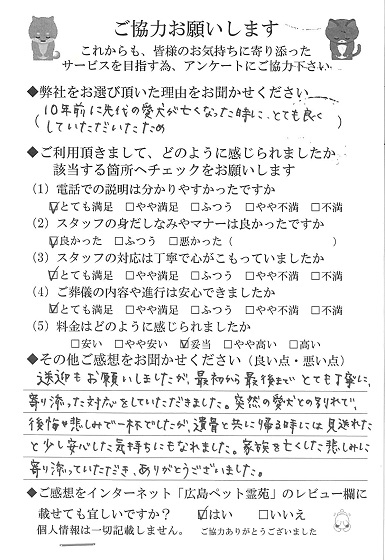 ご協力お願いします
これからも、皆様のお気持ちに寄り添った
サービスを目指す為、アンケートにご協力下さい
◆弊社をお選び頂いた理由をお聞かせください
(10年前に先代の愛犬が亡くなった時に、とても良く
していただいたため)
◆ご利用頂きまして、どのように感じられましたか
該当する箇所へチェックをお願いします
(1) 電話での説明は分かりやすかったですか
☑とても満足 □やや満足 □ふつう □やや不満 □不満
(2) スタッフの身だしなみやマナーは良かったですか
☑良かった □ふつう □悪かった( )
(3) スタッフの対応は丁寧で心がこもっていましたか
☑とても満足 □やや満足 □ふつう □やや不満 □不満
(4) ご葬儀の内容や進行は安心できましたか
☑とても満足 □やや満足 □ふつう □やや不満 □不満
(5) 料金はどのように感じられましたか
□安い □やや安い ☑妥当 □やや高い □高い
◆その他ご感想をお聞かせください(良い点・悪い点)
送迎もお願いしましたが、最初から最後まで とても丁寧に、
寄り添った対応をしていただきました。突然の愛犬との別れで、
後悔や悲しみで一杯でしたが、遺骨と共に帰る時には見送れた
と少し安心した気持ちにもなれました。家族を亡くした悲しみに
寄り添っていただき、ありがとうございました。
◆ご感想をインターネット「広島ペット霊苑」のレビュー欄に
載せても宜しいですか? ☑はい □いいえ
個人情報は一切記載しません。 ご協力ありがとうございました